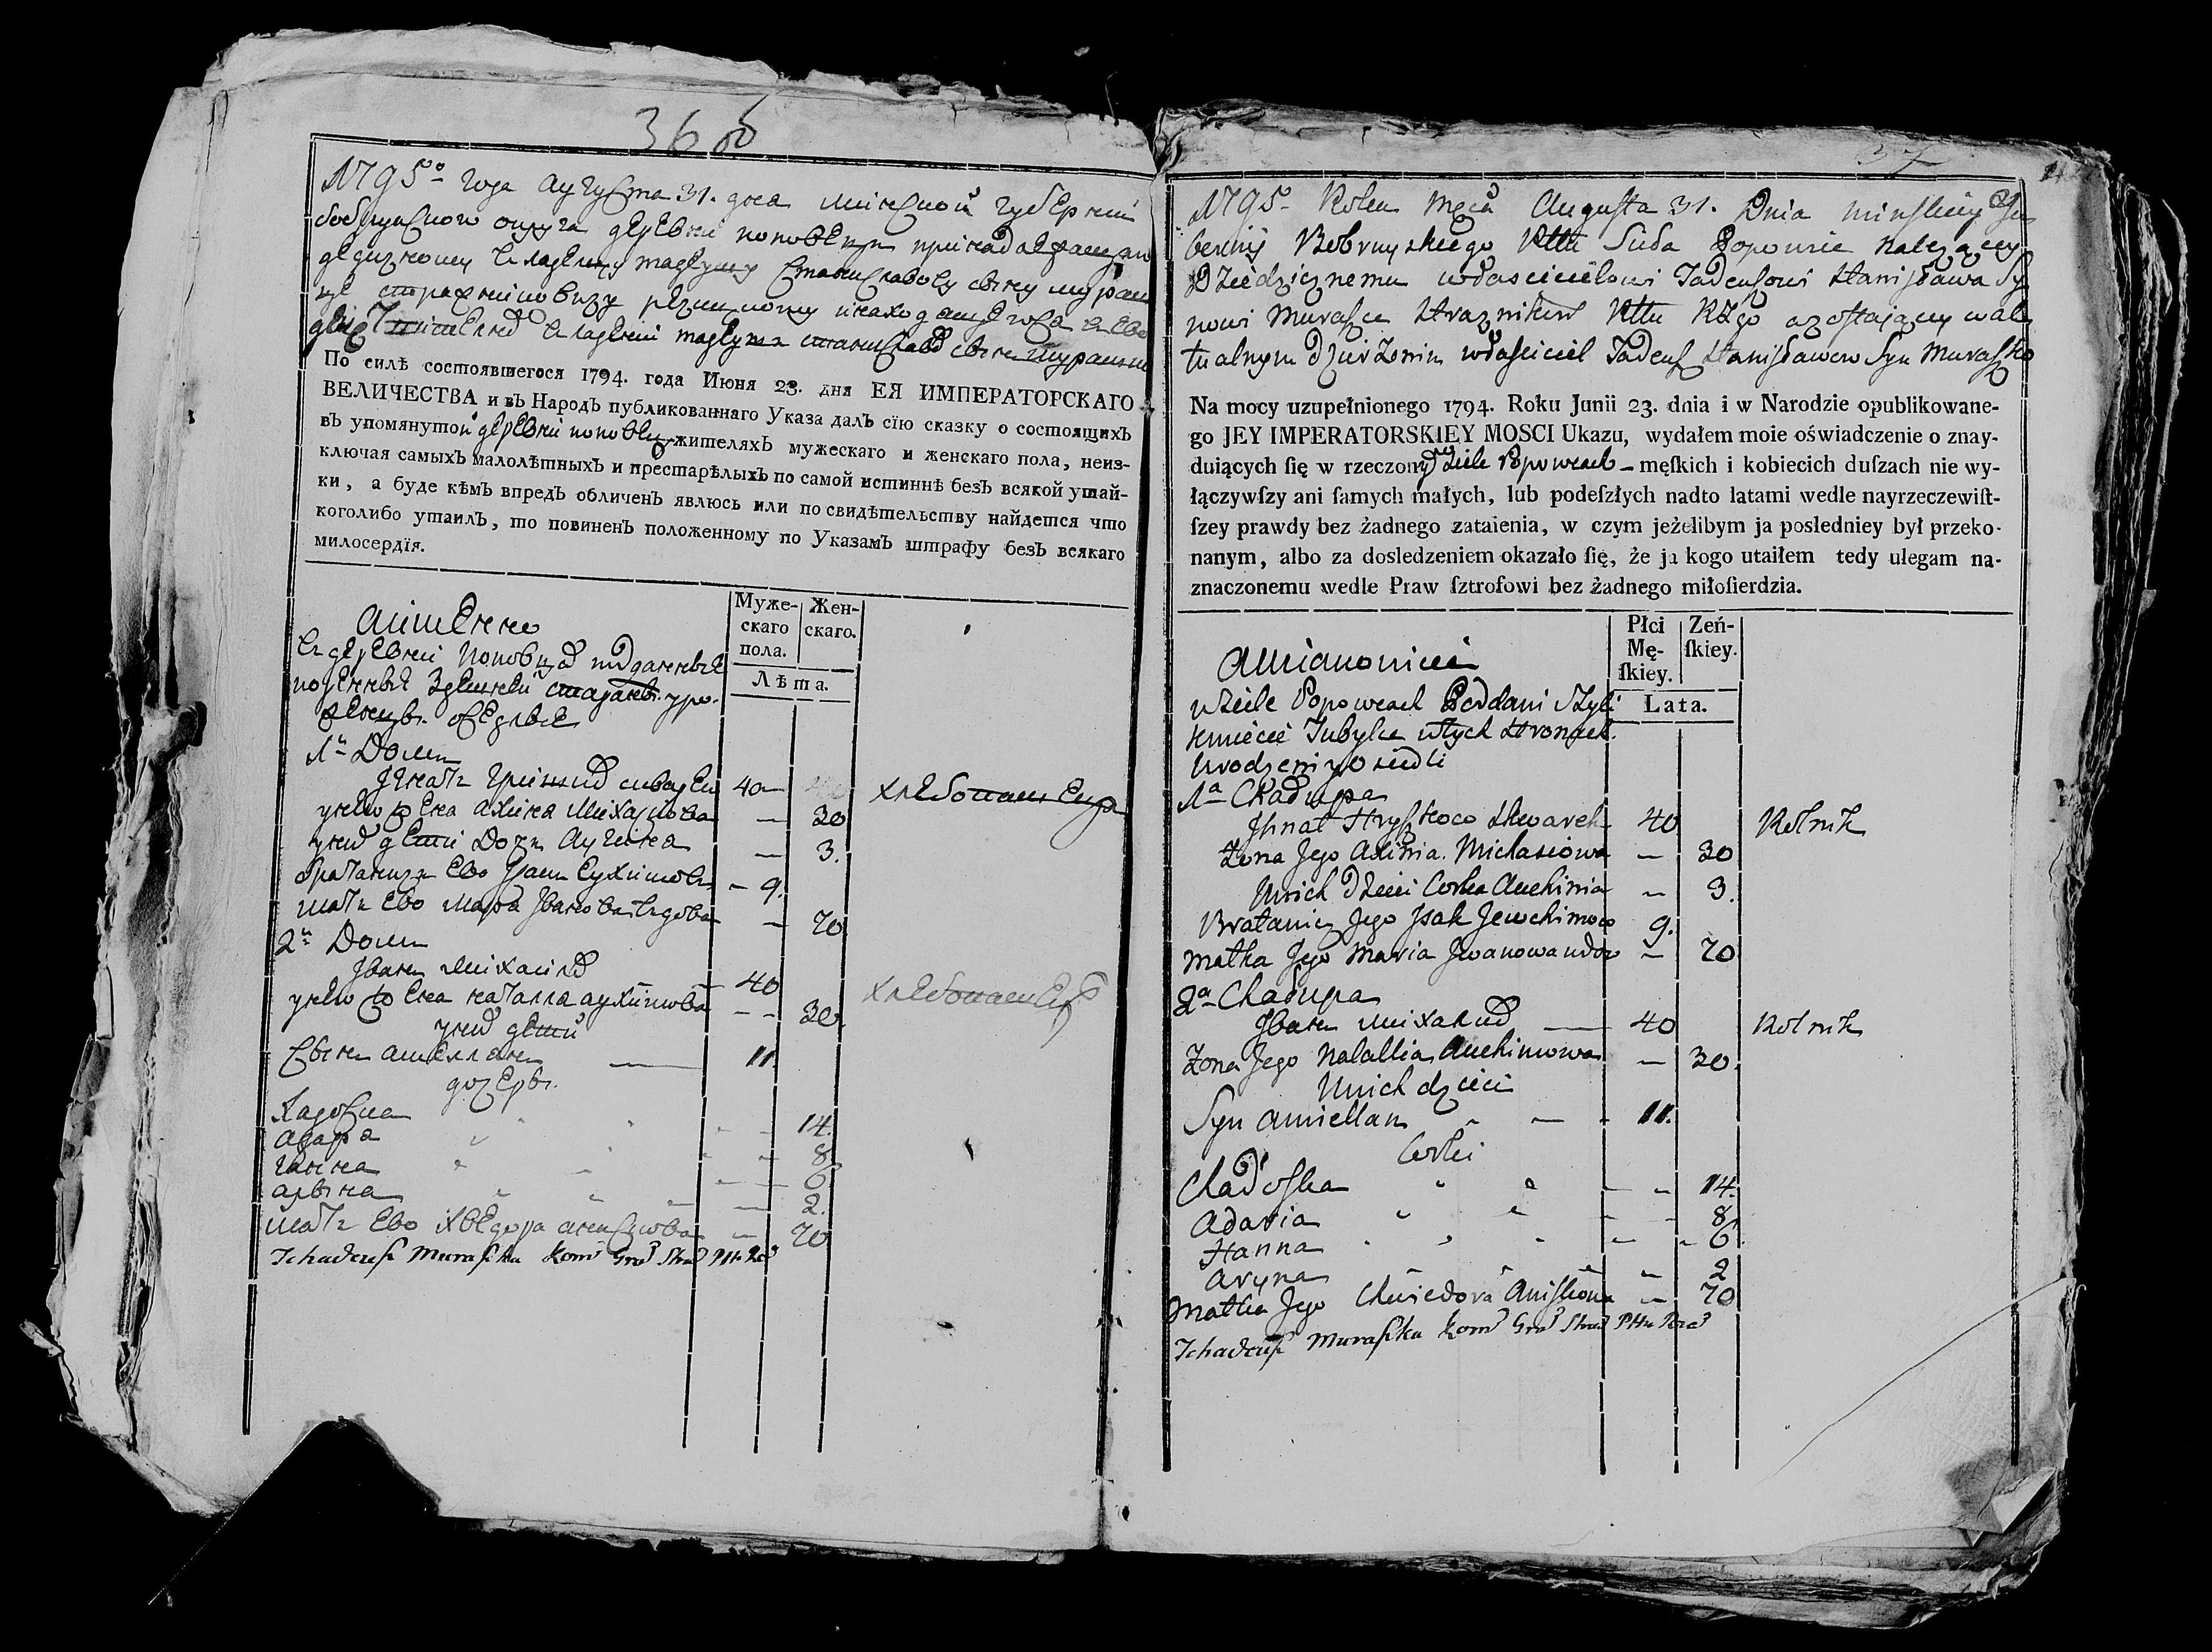 36 об
1795го года августа 31. дня минской губернии
бобруйского округа деревни поповцы принадлежащаи
дедизному владелцу тадеушу станиславову сыну мураш
По силѣ состоявшегося 1794. года Июня 23. дня ЕЯ ИМПЕРАТОРСКАГО
ВЕЛИЧЕСТВА и въ Народъ публикованнаго Указа далъ сїю сказку о состоящихъ
въ упомянутой деревни поповцы жителяхъ мужескаго и женскаго пола, неиз-
ключая самыхъ малолѣтныхъ и престарѣлыхъ по самой истиннѣ безъ всякой утай-
ки, а буде кѣмъ впредъ обличенъ явлюсь или по свидѣтельству найдется что
коголибо утаилъ, то повиненъ положенному по Указамъ штрафу безъ всякаго
милосердїя.
Муже- Жен-
скаго скаго.
пола.
Лѣта.
имено
в деревни поповцах подданные
1й Дом
40
у нево жена ахиня михалова — 30
у них дети Дочь аугиня — 3.
братаниц ево Исак еухимов — 9.
мать ево мара Иванова вдова — 70
2й Дом
Иван михалов — 40
у нево жена наталля аухимова — 30.
у них дети
Сын амеллян — 11.
дочеры
Хадоска 14.
адаря 8
ганна 6
арына 2.
мать ево хведора анискова 70
Thadeusz Muraszka Kom Gra Stra Pttu Rze
37
1795. Roku Męca Augusta 31. Dnia minskiey Gu
bernij Bobruyskiego Pttu Sioła Popowie należącey
Dziedzicznemu włascicielowi Tadeuszowi Stanisława Sy
nowi Muraszce Straznikowi Pttu RZgo azostaiącey w ak
tualnym dzierżeniu właściciel Tadeusz Stanisławow Syn Muraszko
Na mocy uzupełnionego 1794. Roku Junii 23. dnia i w Narodzie opublikowane-
go JEY IMPERATORSKIEY MOSCI Ukazu, wydałem moie oświadczenie o znay-
duiących ſię w rzeczonym Siele Popowcach męſkich i kobiecich duſzach nie wy-
łączywſzy ani ſamych małych, lub podeſzłych nadto latami wedle nayrzeczewiſt-
ſzey prawdy bez żadnego zataienia, w czym jeżelibym ja posledniey był przeko-
nanym, albo za dosledzeniem okazało ſię, że ja kogo utaiłem tedy ulegam na-
znaczonemu wedle Praw ſztrofowi bez żadnego miłoſierdzia.
Płci Zeń-
Mę- ſkiey.
ſkiey.
Lata.
Amianowicie
w Siele Popowcach Poddani
kmiecie Tubylce w tych Stronach
Urodzeni y osiedli
1a Chałupa
Ihnat Hryszkow Skwarek 40 Rolnik
Zona Jego Axinia Michasiowa — 30
U nich Dzieci Corka Auchinia — 3.
Bratanicz Jego Jsak Jewchimow 9.
Matka Jego Maria Jwanowa wdow — 70
2a Chałupa
Иван михалив — 40 Rolnik
Zona Jego Natallia Auchimowa — 30.
U nich dzieci
Syn Amiellan — 11.
Corki
Chadoska — 14.
Adaria 8
Hanna 6
Aryna 2
Matka Jego Chwiedora Aniskowa 70
Thadeusz Muraszka Kom Gra Stra Pttu Rze